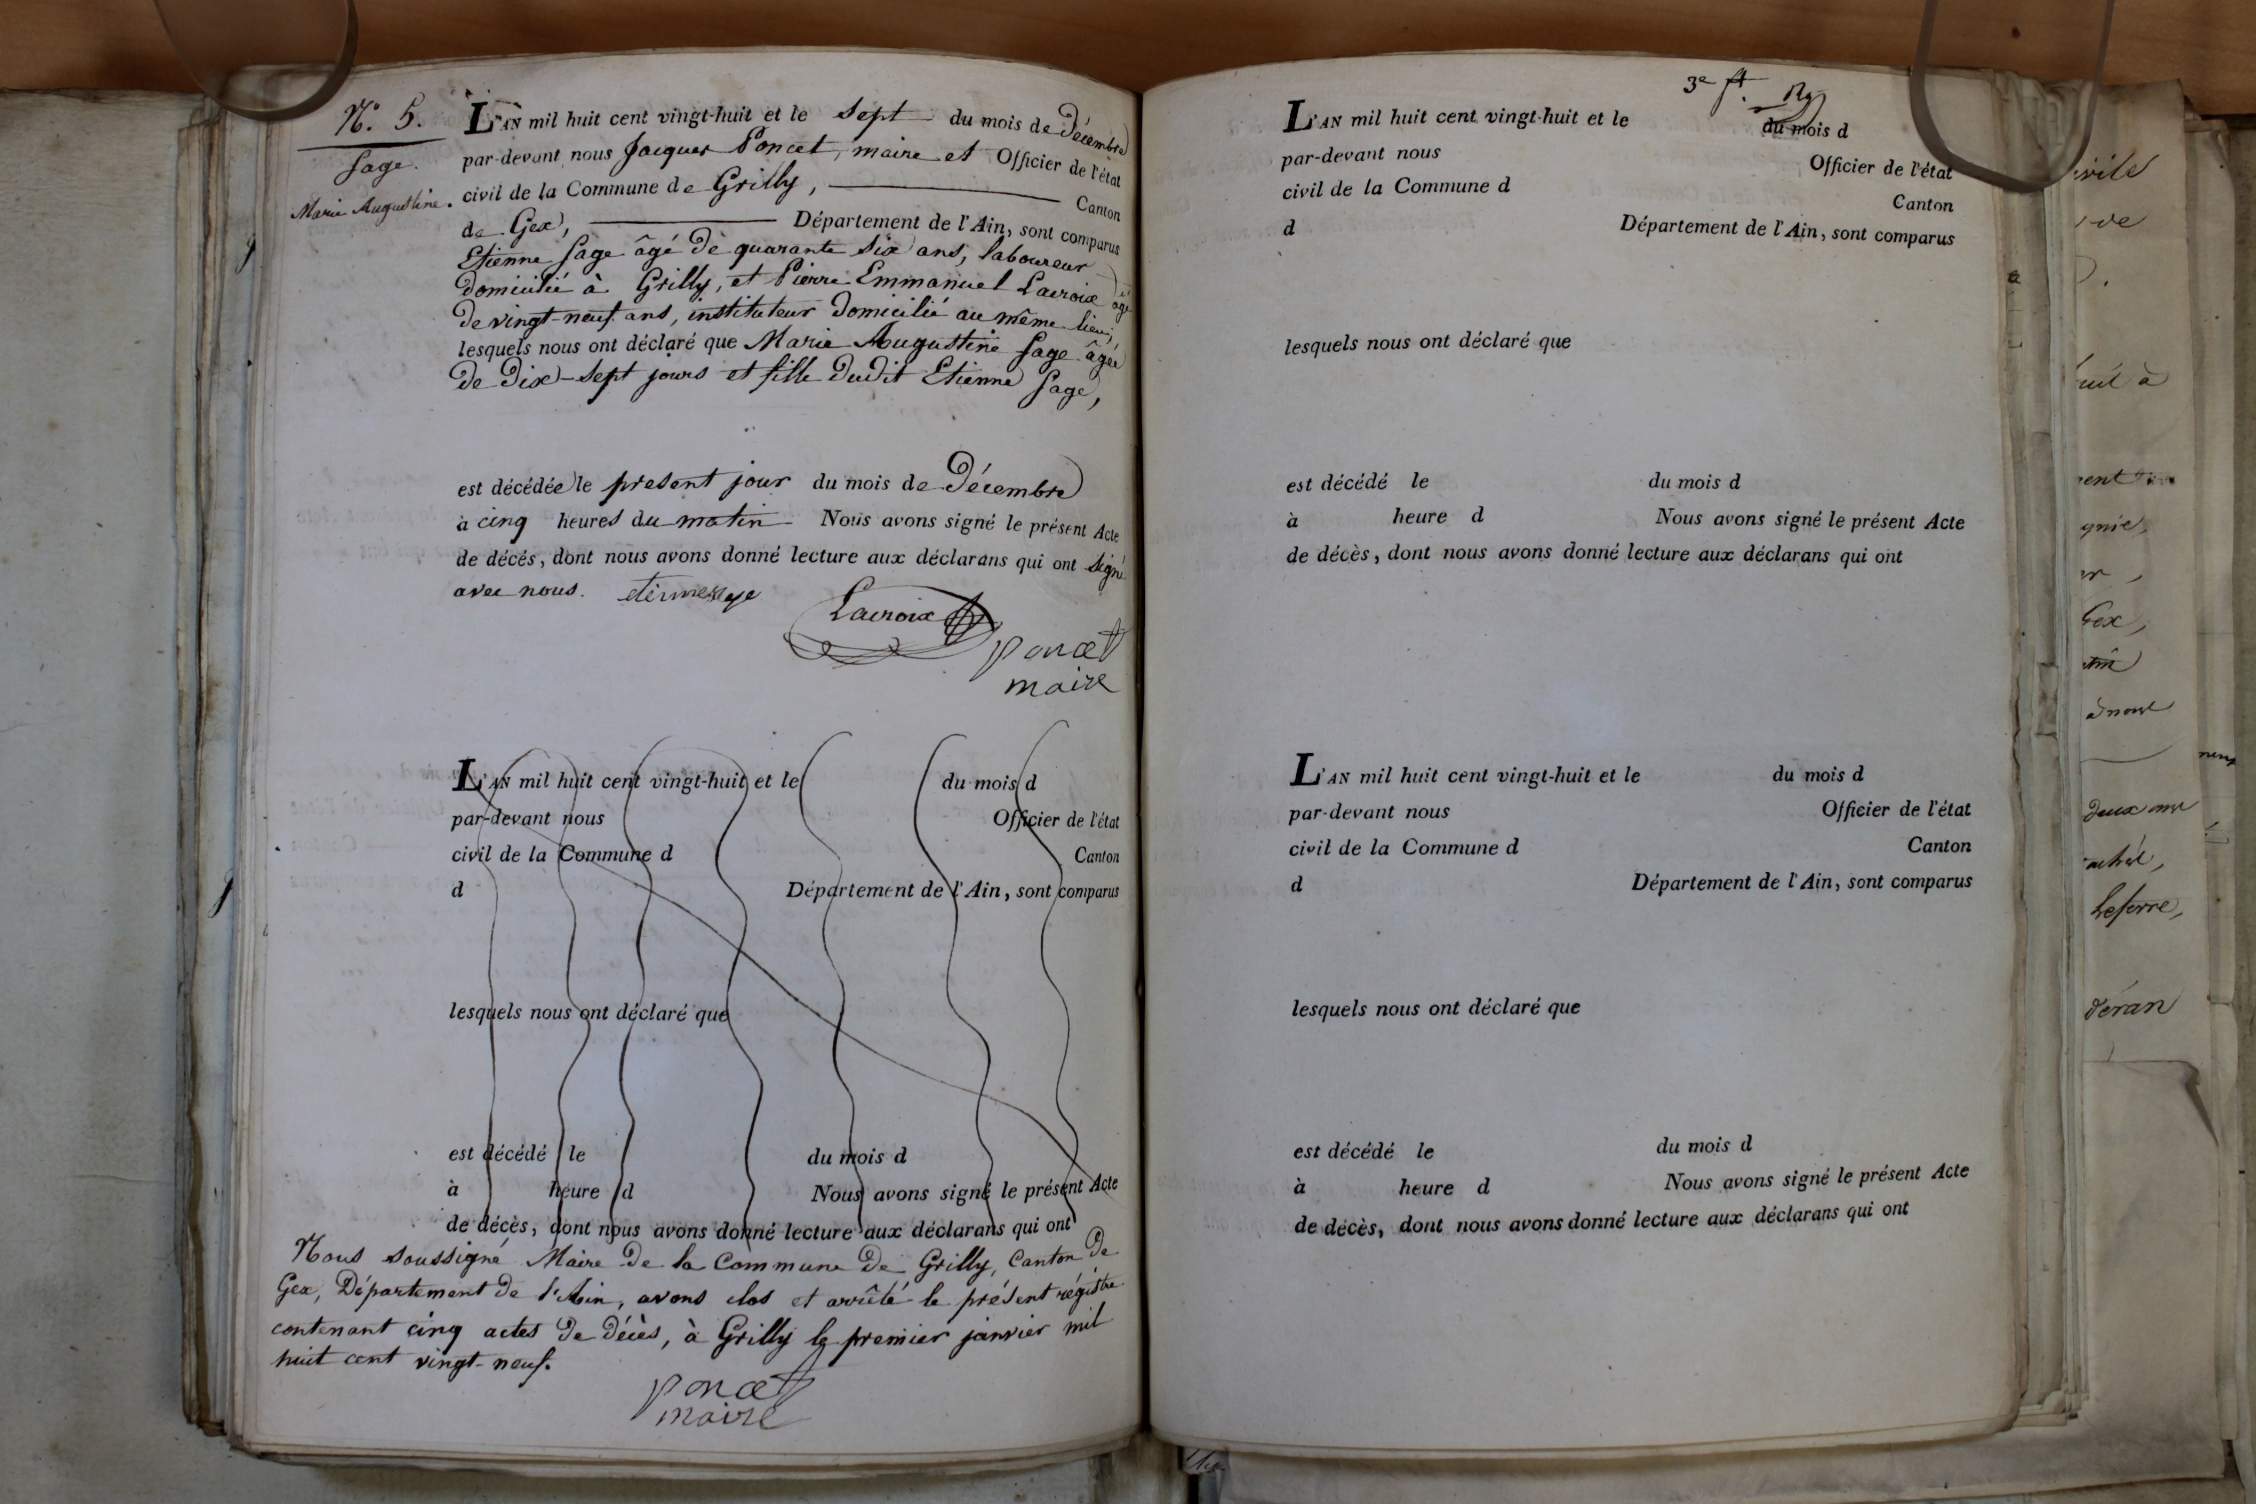 N.° 5.
Sage.
Marie Augustine.
L'AN mil huit cent vingt-huit et le sept du mois de Décembre
par-devant nous Jacques Poncet, maire et Officier de l'état
civil de la Commune de Grilly, Canton
de Gex, Département de l'Ain, sont comparus
Etienne Sage âgé de quarante six ans, laboureur
domicilié à Grilly, et Pierre Emmanuel Lacroix âgé
de vingt-neuf ans, instituteur domicilié au même lieu,
lesquels nous ont déclaré que Marie Augustine Sage âgée
de dix-sept jours et fille dudit Etienne Sage,
est décédée le present jour du mois de Décembre
à cinq heures du matin Nous avons signé le présent Acte
de décés, dont nous avons donné lecture aux déclarans qui ont signé
avec nous. etienne sage
Lacroix
Poncet
maire
L'AN mil huit cent vingt-huit et le du mois d
par-devant nous Officier de l'état
civil de la Commune d Canton
d Département de l'Ain, sont comparus
lesquels nous ont déclaré que
est décédé le du mois d
à heure d Nous avons signé le présent Acte
de décès, dont nous avons donné lecture aux déclarans qui ont
Nous soussigné Maire de la Commune de Grilly, Canton de
Gex, Département de l'Ain, avons clos et arrêté le présent régistre
contenant cinq actes de décès, à Grilly le premier janvier mil
huit cent vingt-neuf.
Poncet
maire
3e ft.
L'AN mil huit cent vingt-huit et le du mois d
par-devant nous Officier de l'état
civil de la Commune d Canton
d Département de l'Ain, sont comparus
lesquels nous ont déclaré que
est décédé le du mois d
à heure d Nous avons signé le présent Acte
de décès, dont nous avons donné lecture aux déclarans qui ont
L'AN mil huit cent vingt-huit et le du mois d
par-devant nous Officier de l'état
civil de la Commune d Canton
d Département de l'Ain, sont comparus
lesquels nous ont déclaré que
est décédé le du mois d
à heure d Nous avons signé le présent Acte
de décès, dont nous avons donné lecture aux déclarans qui ont